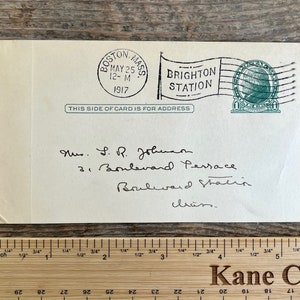 BOSTON, MASS.
MAY 25
12-M
1917
BRIGHTON
STATION
THIS SIDE OF CARD IS FOR ADDRESS
Mrs. L. R. Johnson
31 Boulevard Terrace
Boulevard Station
Mass.
Kane